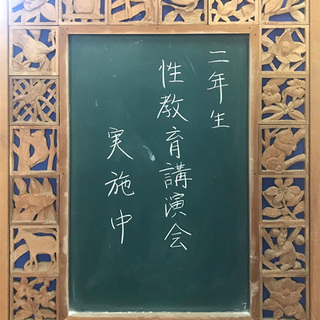 二年生
性教育講演会
実施中